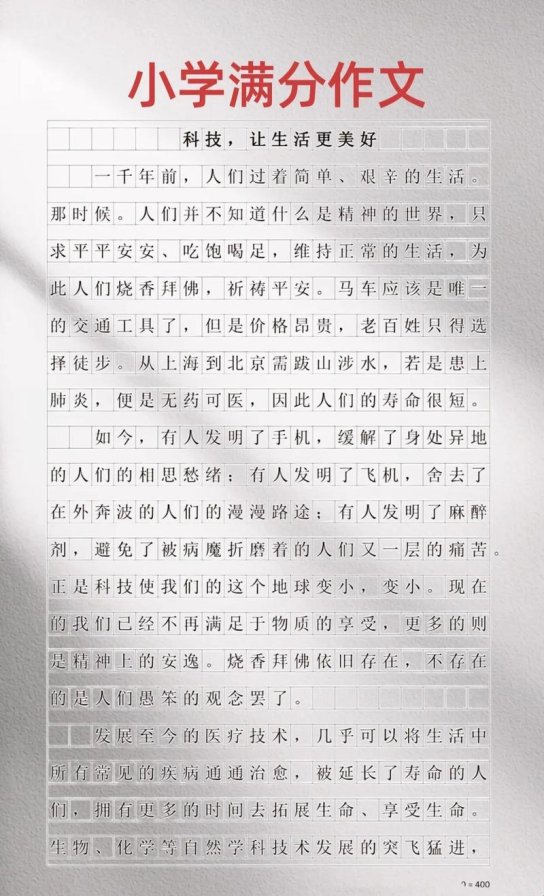 小学满分作文
科技，让生活更美好
一千年前，人们过着简单、艰辛的生活。
那时候。人们并不知道什么是精神的世界，只
求平平安安、吃饱喝足，维持正常的生活，为
此人们烧香拜佛，祈祷平安。马车应该是唯一
的交通工具了，但是价格昂贵，老百姓只得选
择徒步。从上海到北京需跋山涉水，若是患上
肺炎，便是无药可医，因此人们的寿命很短。
如今，有人发明了手机，缓解了身处异地
的人们的相思愁绪；有人发明了飞机，舍去了
在外奔波的人们的漫漫路途；有人发明了麻醉
剂，避免了被病魔折磨着的人们又一层的痛苦。
正是科技使我们的这个地球变小，变小。现在
的我们已经不再满足于物质的享受，更多的则
是精神上的安逸。烧香拜佛依旧存在，不存在
的是人们愚笨的观念罢了。
发展至今的医疗技术，几乎可以将生活中
所有常见的疾病通通治愈，被延长了寿命的人
们，拥有更多的时间去拓展生命、享受生命。
生物、化学等自然学科技术发展的突飞猛进，
= 400